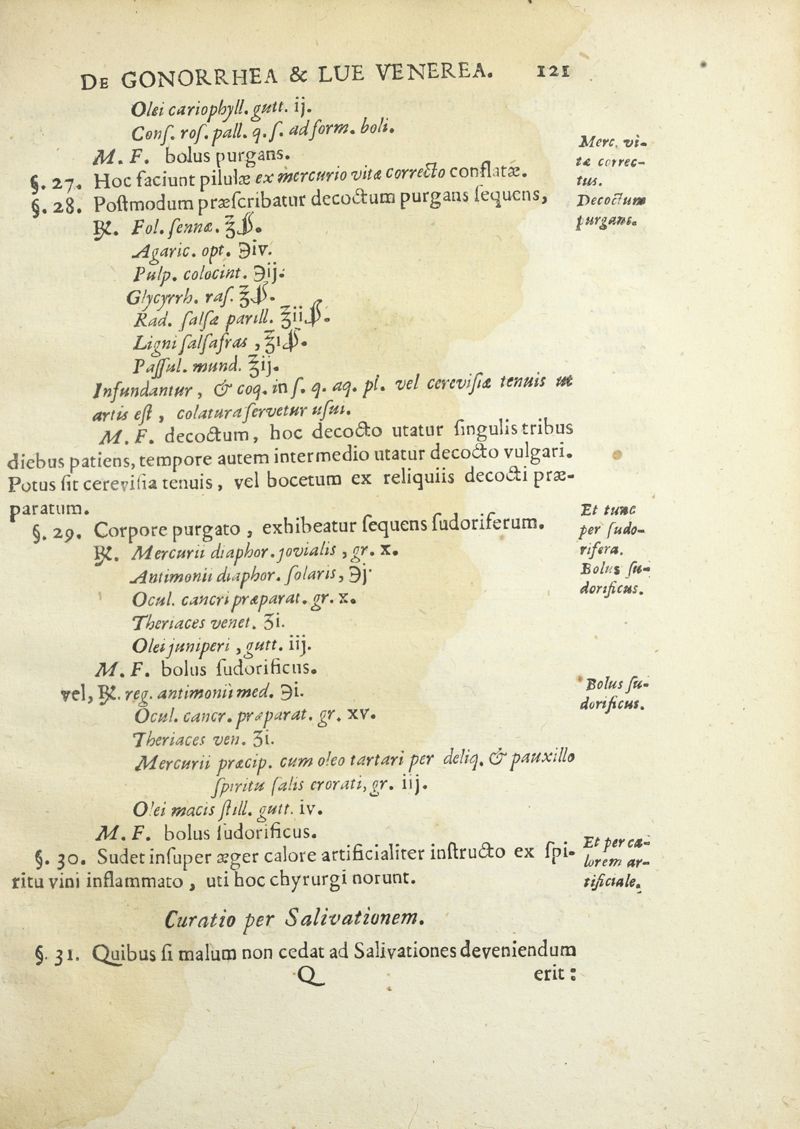 DE GONORRHEA & LUE VENEREA. 121
Olei cariophyll. gutt. ij.
Conſ. roſ. pall. q. ſ. ad form. boli.
M. F. bolus purgans.
Merc. vi-
tæ correc-
tus.
§. 27. Hoc faciunt pilulæ ex mercurio vitæ correcto conflatæ.
§. 28. Poſtmodum præſcribatur decoctum purgans ſequens,
Decoctum
purgans.
℞. Fol. ſennæ. ℥ß.
Agaric. opt. ℈iv.
Pulp. colocint. ℈ij.
Glycyrrh. raſ. ℥ß.
Rad. ſalſæ parill. ℥iiß.
Ligni ſalſafras, ℥iß.
Paſſul. mund. ℥ij.
Infundantur, & coq. in ſ. q. aq. pl. vel cereviſiæ tenuis ut
artis eſt, colatura ſervetur uſui.
M. F. decoctum, hoc decocto utatur ſingulis tribus
diebus patiens, tempore autem intermedio utatur decocto vulgari.
Potus ſit cereviſia tenuis, vel bocetum ex reliquiis decocti præ-
paratum.
§. 29. Corpore purgato, exhibeatur ſequens ſudoriferum.
Et tunc
per ſudo-
rifera.
Bolus ſu-
dorificus.
℞. Mercurii diaphor. jovialis, gr. x.
Antimonii diaphor. ſolaris, ℈j.
Ocul. cancri præparat. gr. x.
Theriaces venet. ʒi.
Olei juniperi, gutt. iij.
M. F. bolus ſudorificus.
vel, ℞. reg. antimonii med. ℈i.
Bolus ſu-
dorificus.
Ocul. cancr. præparat. gr. xv.
Theriaces ven. ʒi.
Mercurii præcip. cum oleo tartari per deliq. & pauxillo
ſpiritu ſalis crorati, gr. iij.
Olei macis ſtill. gutt. iv.
M. F. bolus ſudorificus.
§. 30. Sudet inſuper æger calore artificialiter inſtructo ex ſpi-
ritu vini inflammato, uti hoc chyrurgi norunt.
Et per ca-
lorem ar-
tificiale.
Curatio per Salivationem.
§. 31. Quibus ſi malum non cedat ad Salivationes deveniendum
Q erit: